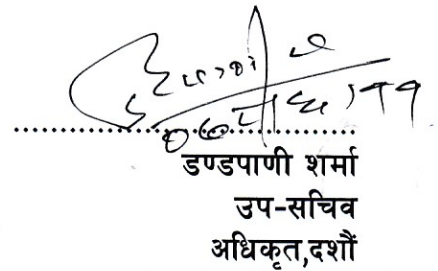 डण्डपाणी शर्मा
उप-सचिव
अधिकृत,दशौं